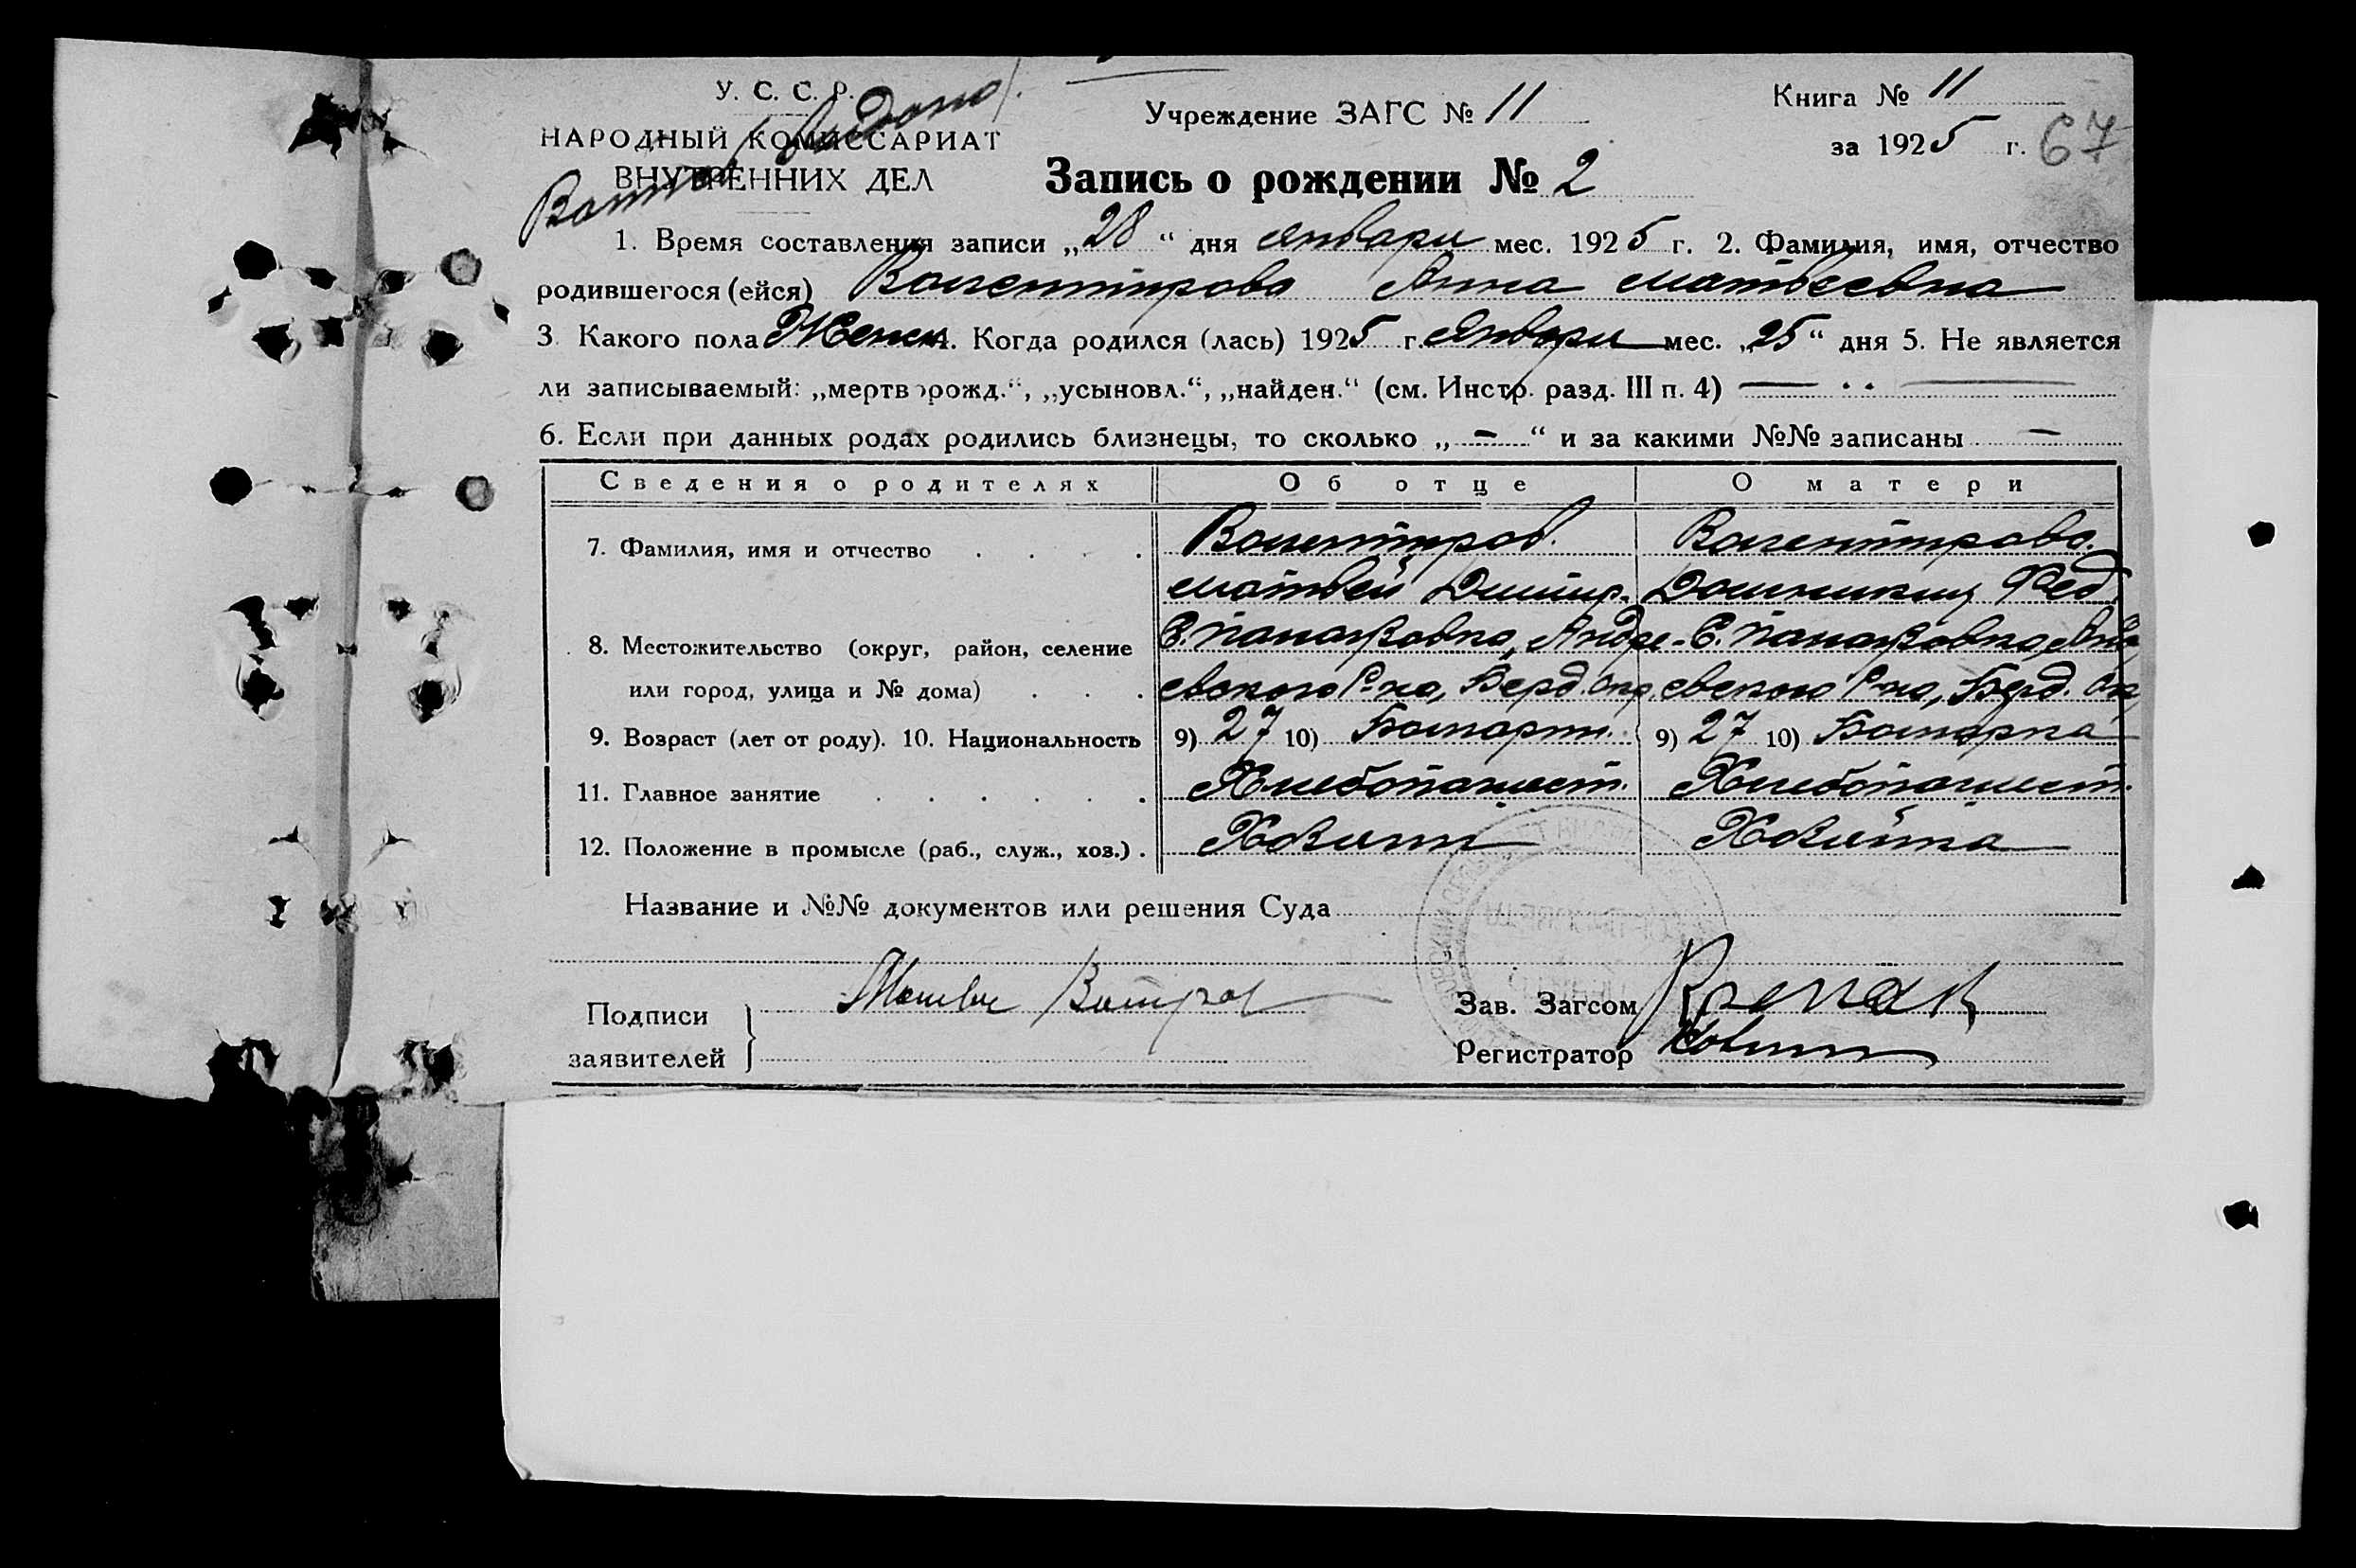 У. С. С. Р.
НАРОДНЫЙ КОМИССАРИАТ
ВНУТРЕННИХ ДЕЛ
Учреждение ЗАГС № 11
Книга № 11
за 1925 г. 67
Запись о рождении № 2
1. Время составления записи „28“ дня января мес. 1925 г. 2. Фамилия, имя, отчество
родившегося (ейся) Валентирова Анна Матвеевна
3. Какого пола Женск 4. Когда родился (лась) 1925 г. января мес. „25“ дня 5. Не является
ли записываемый: „мертворожд.“, „усыновл.“, „найден.“ (см. Инстр. разд. III п. 4) —
6. Если при данных родах родились близнецы, то сколько „ — “ и за какими №№ записаны —
Сведения о родителях Об отце О матери
7. Фамилия, имя и отчество . . . . Валентиров. Валентирова.
Матвей Димитр. Фед.
8. Местожительство (округ, район, селение
или город, улица и № дома) . . . евского Р-на, Берд. Окр. евского Р-на, Берд. Ок
9. Возраст (лет от роду). 10. Национальность 9) 27 10) Болгарин. 9) 27 10) Болгарка
11. Главное занятие . . . . . . Хлебопашест. Хлебопашест.
12. Положение в промысле (раб., служ., хоз.) . Хозяин Хозяйка
Название и №№ документов или решения Суда
Подписи
заявителей
Зав. Загсом
Регистратор